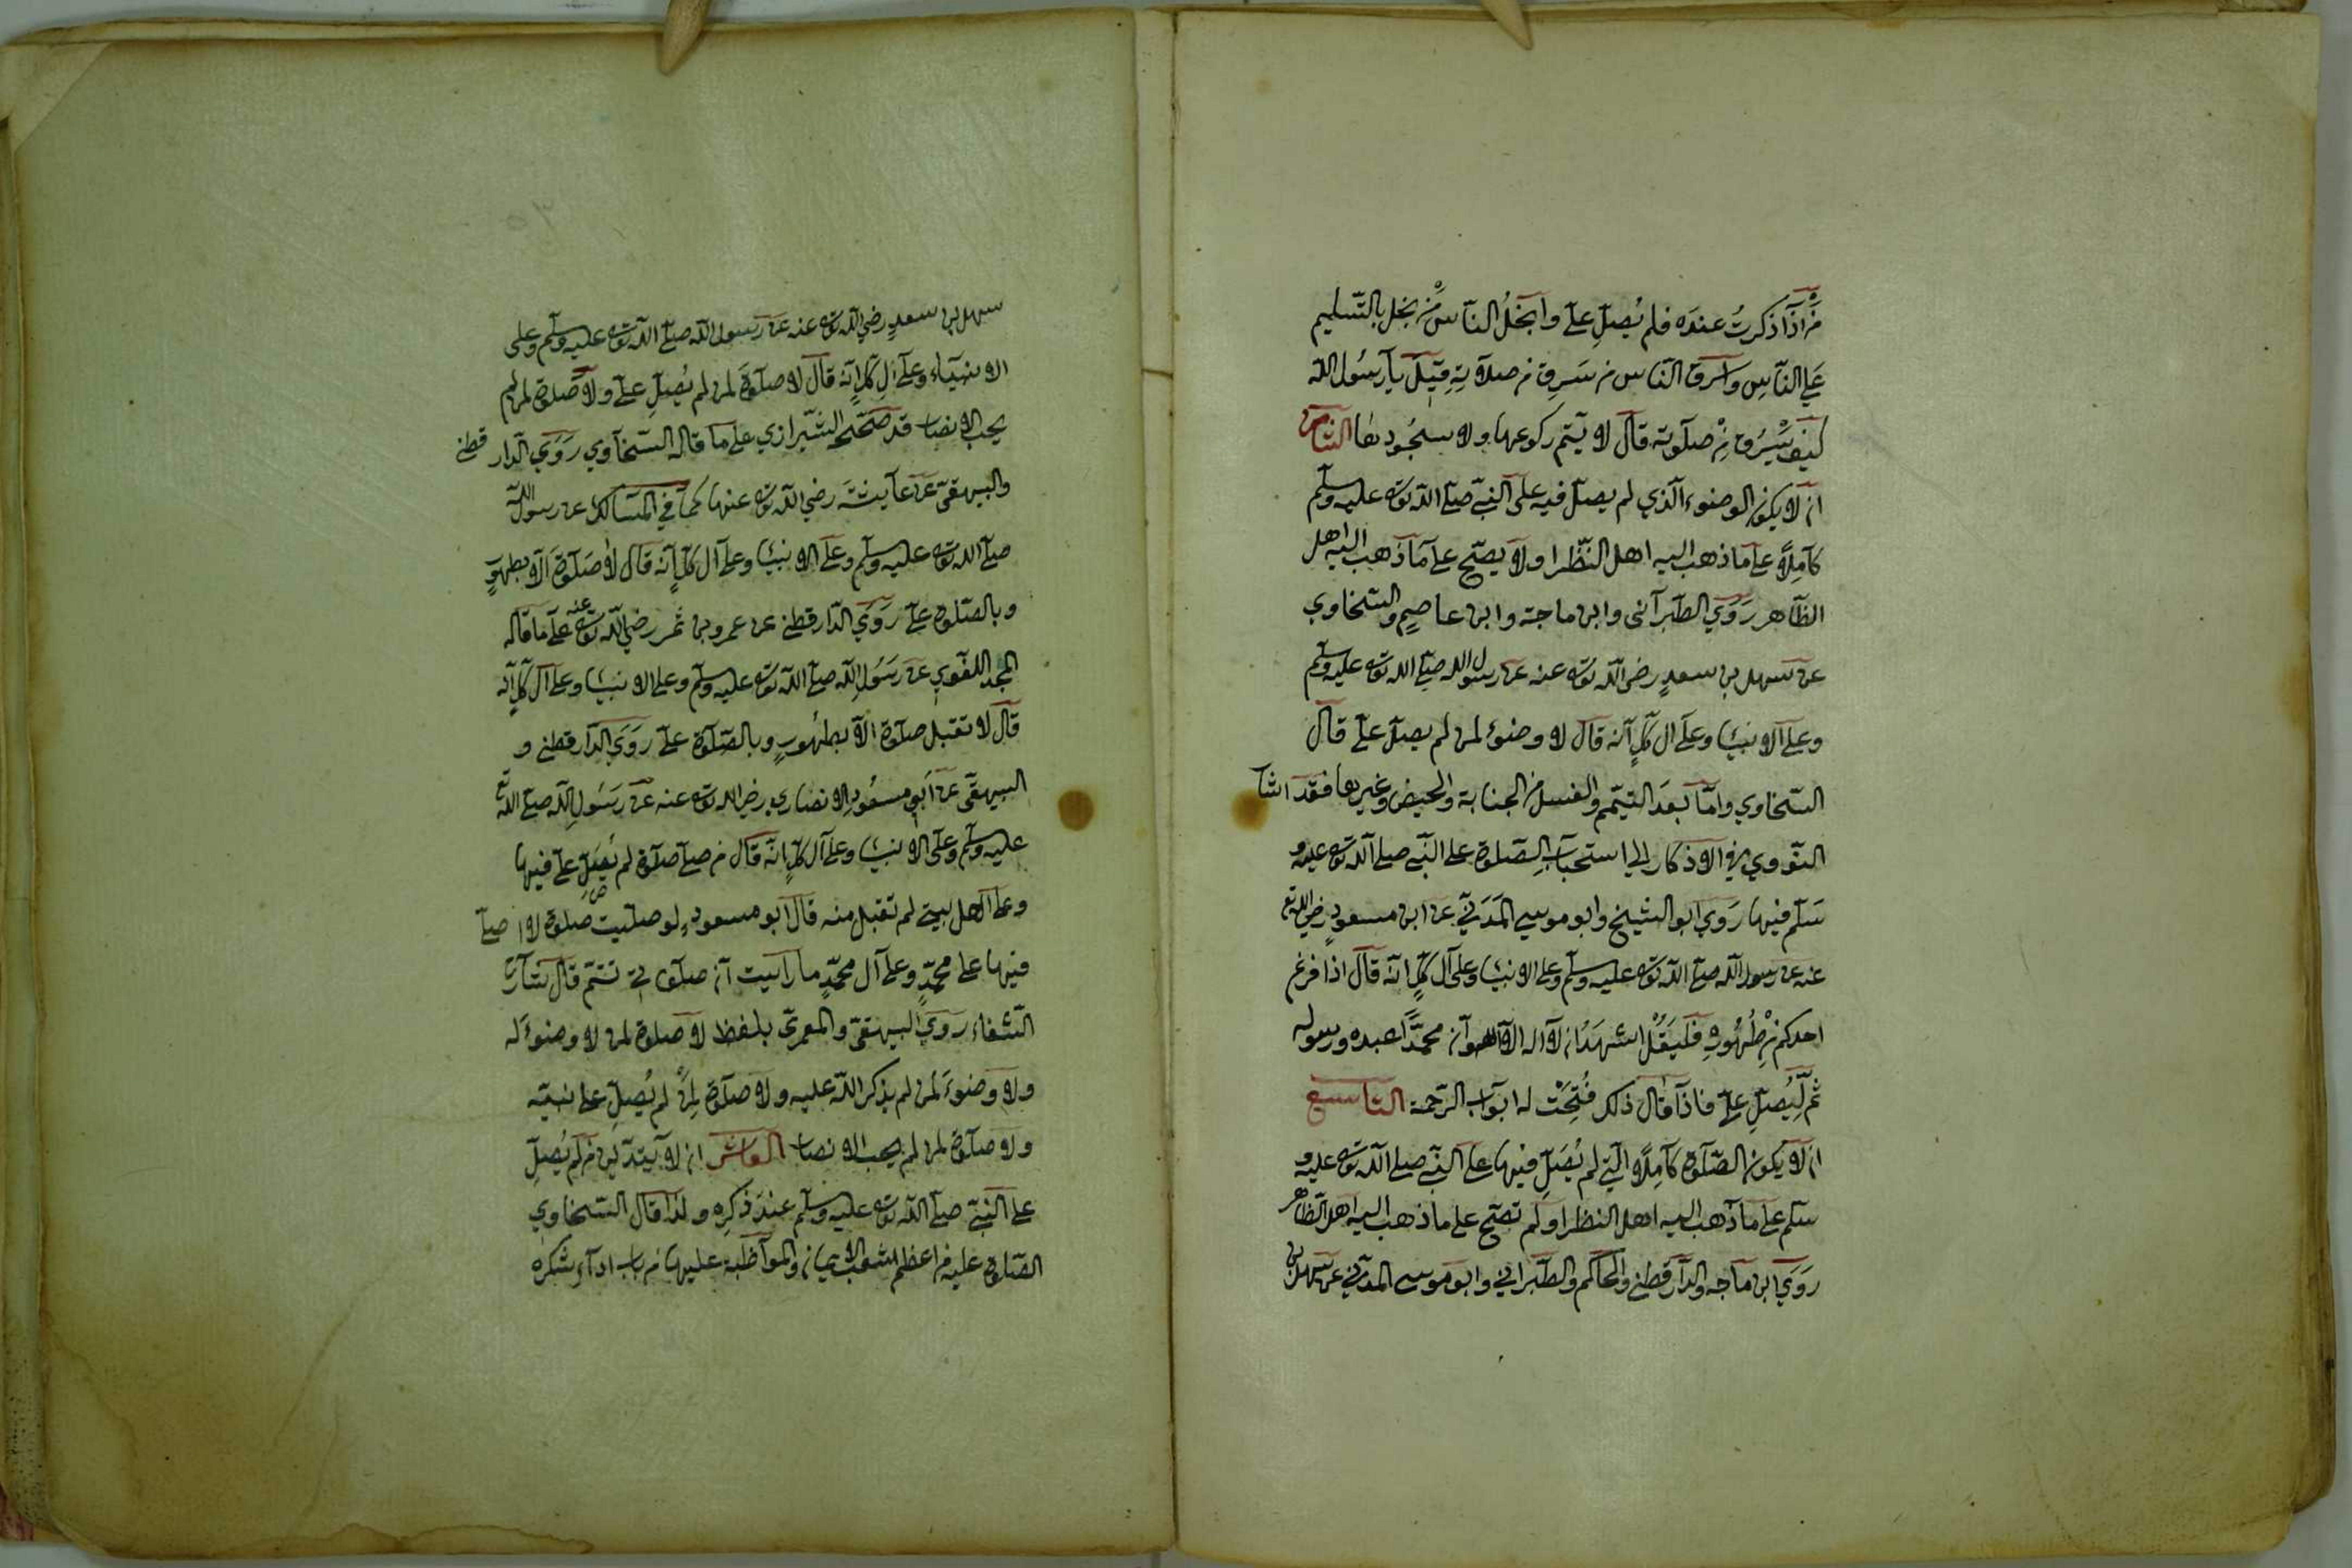 من اذا ذكرت عنده فلم يصل على وابخل الناس من بخل بالتسليم
على الناس واسرق الناس من سرق من صلاته قيل يا رسول الله
كيف يسرق من صلوته قال لا يتم ركوعها ولا سجودها الثامن
ان لا يكون الوضوء الذي لم يصل فيه على النبي صلى الله تعالى عليه وسلم
كاملا على ما ذهب اليه اهل النظر او لا يصح على ما ذهب اليه اهل
الظاهر روى الطبراني وابن ماجة وابن عاصم والسخاوي
عن سهل بن سعد رضي الله تعالى عنه عن رسول الله صلى الله تعالى عليه وسلم
وعلى الانبيا وعلى ال كل انه قال لا وضوء لمن لم يصل على قال
السخاوي واما بعد التيمم والغسل من الجنابة والحيض وغيرها فقد اشا
النووي في الاذكار الى استحباب الصلوة على النبي صلى الله تعالى عليه و
سلم فيها روى ابو الشيخ وابو موسى المدني عن ابن مسعود رضي الله تع
عنه عن رسول الله صلى الله تعالى عليه وسلم وعلى الانبيا وعلى ال كل انه قال اذا فرغ
احدكم من طهوره فليقل اشهد ان لا اله الا الله وان محمدا عبده ورسوله
ثم ليصل على فاذا قال ذلك فتحت له ابواب الرحمة التاسع
ان لا يكون الصلوة كاملا التي لم يصل فيها على النبي صلى الله تعالى عليه و
سلم على ما ذهب اليه اهل النظر او لم تصح على ما ذهب اليه اهل الظاهر
روى ابن ماجه والدارقطني والحاكم والطبراني وابو موسى المدني عن سهل بن
سهل بن سعد رضي الله تعالى عنه عن رسول الله صلى الله تعالى عليه وسلم وعلى
الانبياء وعلى ال كل انه قال لا صلوة لمن لم يصل على ولا صلوة لمن لم
يحب الانصار قد صححه الشيرازي على ما قاله السخاوي روى الدار قطني
والبيهقي عن عايشة رضي الله تعالى عنها كما في المسالك عن رسول الله
صلى الله تعالى عليه وسلم وعلى الانبيا وعلى ال كل انه قال لا صلوة الا بطهور
وبالصلوة على روى الدارقطني عن عمرو بن شمر رضي الله تعالى عنه على ما قاله
المجد اللغوي عن رسول الله صلى الله تعالى عليه وسلم وعلى الانبيا وعلى ال كل انه
قال لا تقبل صلوة الا بطهور وبالصلوة على روى الدارقطني و
البيهقي عن ابي مسعود الانصاري رضي الله تعالى عنه عن رسول الله صلى الله تع
عليه وسلم وعلى الانبيا وعلى ال كل انه قال من صلى صلوة لم يصل على فيها
وعلى اهل بيتي لم تقبل منه قال ابو مسعود رض لو صليت صلوة لا اصلى
فيها على محمد وعلى آل محمد ما رايت ان صلوتي تتم قال شارح
الشفاء روى البيهقي والمعمري بلفظ لا صلوة لمن لا وضوء له
ولا وضوء لمن لم يذكر الله عليه ولا صلوة لمن لم يصل على نبيه
ولا صلوة لمن لم يحب الانصار العاشر ان لا يتدين من لم يصل
على النبي صلى الله تعالى عليه وسلم عند ذكره ولذا قال السخاوي
الصلوة عليه من اعظم شعب الايمان والمواظبة عليها من باب اداء شكره